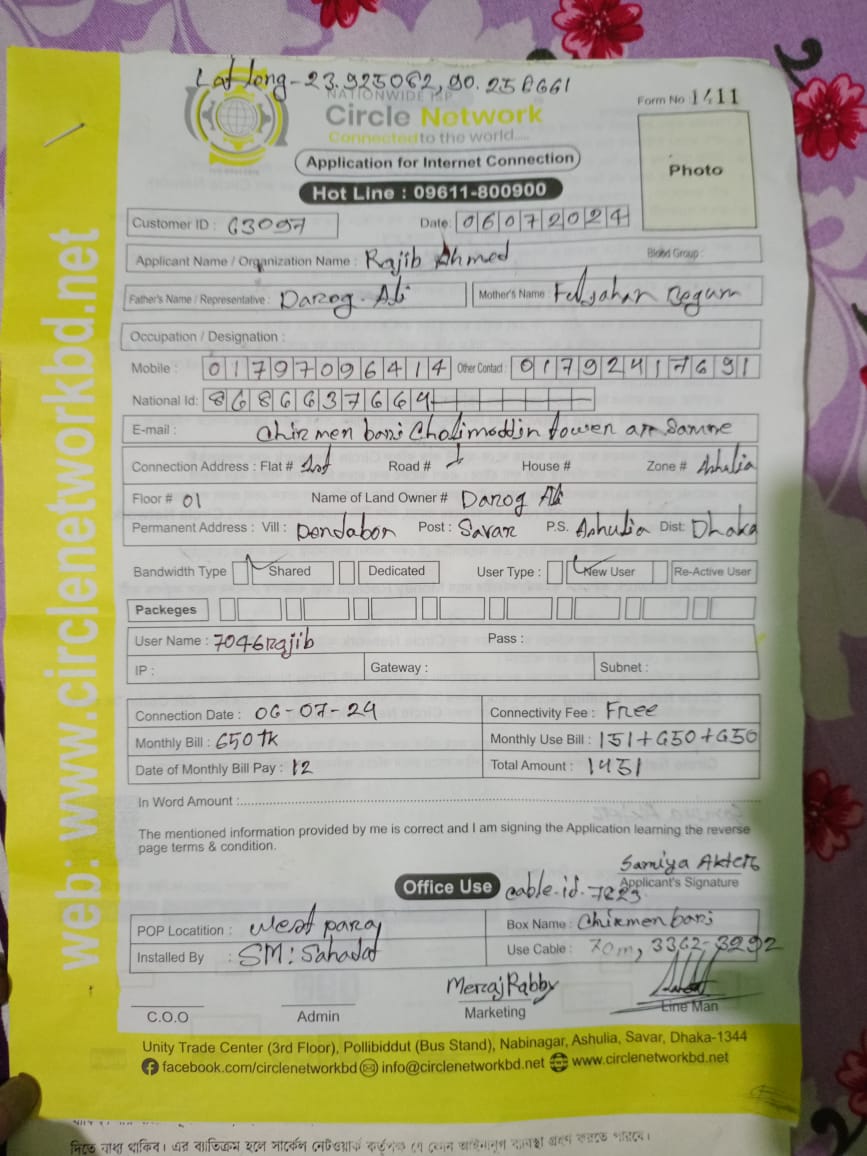 Lat long - 23.925062, 90.258661
NATIONWIDE ISP
Circle Network
Connected to the world.....
Form No 1411
Application for Internet Connection
Photo
Hot Line : 09611-800900
Customer ID : 63097 Date: 06072024
Applicant Name / Organization Name : Rajib Ahmed Blood Group :
Father's Name / Representative : Darog Ali Mother's Name : Begum
Occupation / Designation :
Mobile : 01797096414 Other Contact : 01792417691
National Id: 8686637664
E-mail : Chirmen bari Cholimoddin tower
Connection Address : Flat # 1st Road # House # Zone # Ashulia
Floor # 01 Name of Land Owner # Darog Ali
Permanent Address : Vill : Dendabor Post : Savar P.S. Ashulia Dist: Dhaka
Bandwidth Type Shared Dedicated User Type : New User Re-Active User
Packeges
User Name : 7046Rajib Pass :
IP : Gateway : Subnet :
Connection Date : 06-07-24 Connectivity Fee : Free
Monthly Bill : 650 Tk Monthly Use Bill : 151+650+650
Date of Monthly Bill Pay : 12 Total Amount : 1451
In Word Amount :
The mentioned information provided by me is correct and I am signing the Application learning the reverse
page terms & condition.
Samiya Akter
Applicant's Signature
Office Use cable.id-7223
POP Locatition : West para Box Name : Chirmen bari
Installed By : SM: Sahadat Use Cable : 70m, 3362-3292
Meraj Rabby
C.O.O Admin Marketing Line Man
Unity Trade Center (3rd Floor), Pollibiddut (Bus Stand), Nabinagar, Ashulia, Savar, Dhaka-1344
facebook.com/circlenetworkbd info@circlenetworkbd.net www.circlenetworkbd.net
web: www.circlenetworkbd.net
দিতে বাধ্য থাকিব। এর ব্যতিক্রম হলে সার্কেল নেটওয়ার্ক কর্তৃপক্ষ যে কোন আইনানুগ ব্যবস্থা গ্রহণ করতে পারবে।